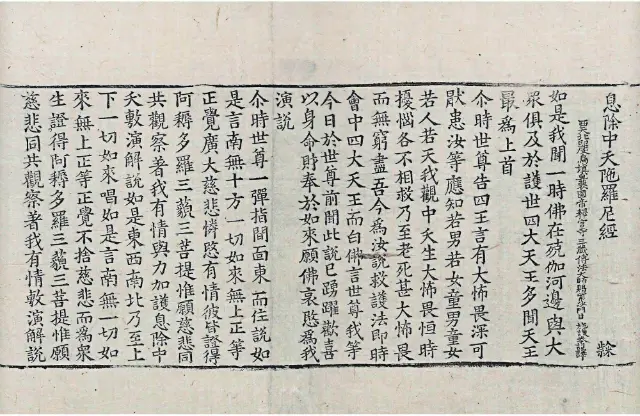 息除中夭陁羅尼經
烏填曩國帝釋宮寺三藏傳法大師賜紫沙門臣施護奉詔譯
如是我聞一時佛在殑伽河邊與大
衆俱及於護世四大天王多聞天王
最爲上首
尒時世尊告四王言有大怖畏深可
猒患汝等應知若男若女童男童女
若人若天我觀中夭生大怖畏恒時
擾惱各不相救乃至老死甚大怖畏
而無窮盡吾今爲汝說救護法即時
會中四大天王而白佛言世尊我等
今日於世尊前聞此說已踴躍歡喜
以身命財奉於如來願佛哀愍爲我
演說
尒時世尊一彈指間面東而住說如
是言南無十方一切如來無上正等
正覺廣大慈悲憐愍有情彼皆證得
阿耨多羅三藐三菩提惟願慈悲同
共觀察著我有情與力加護息除中
夭敷演解說如是東西南北乃至上
下一切如來唱如是言南無一切如
來無上正等正覺不捨慈悲而爲衆
生證得阿耨多羅三藐三菩提惟願
慈悲同共觀察著我有情敷演解說